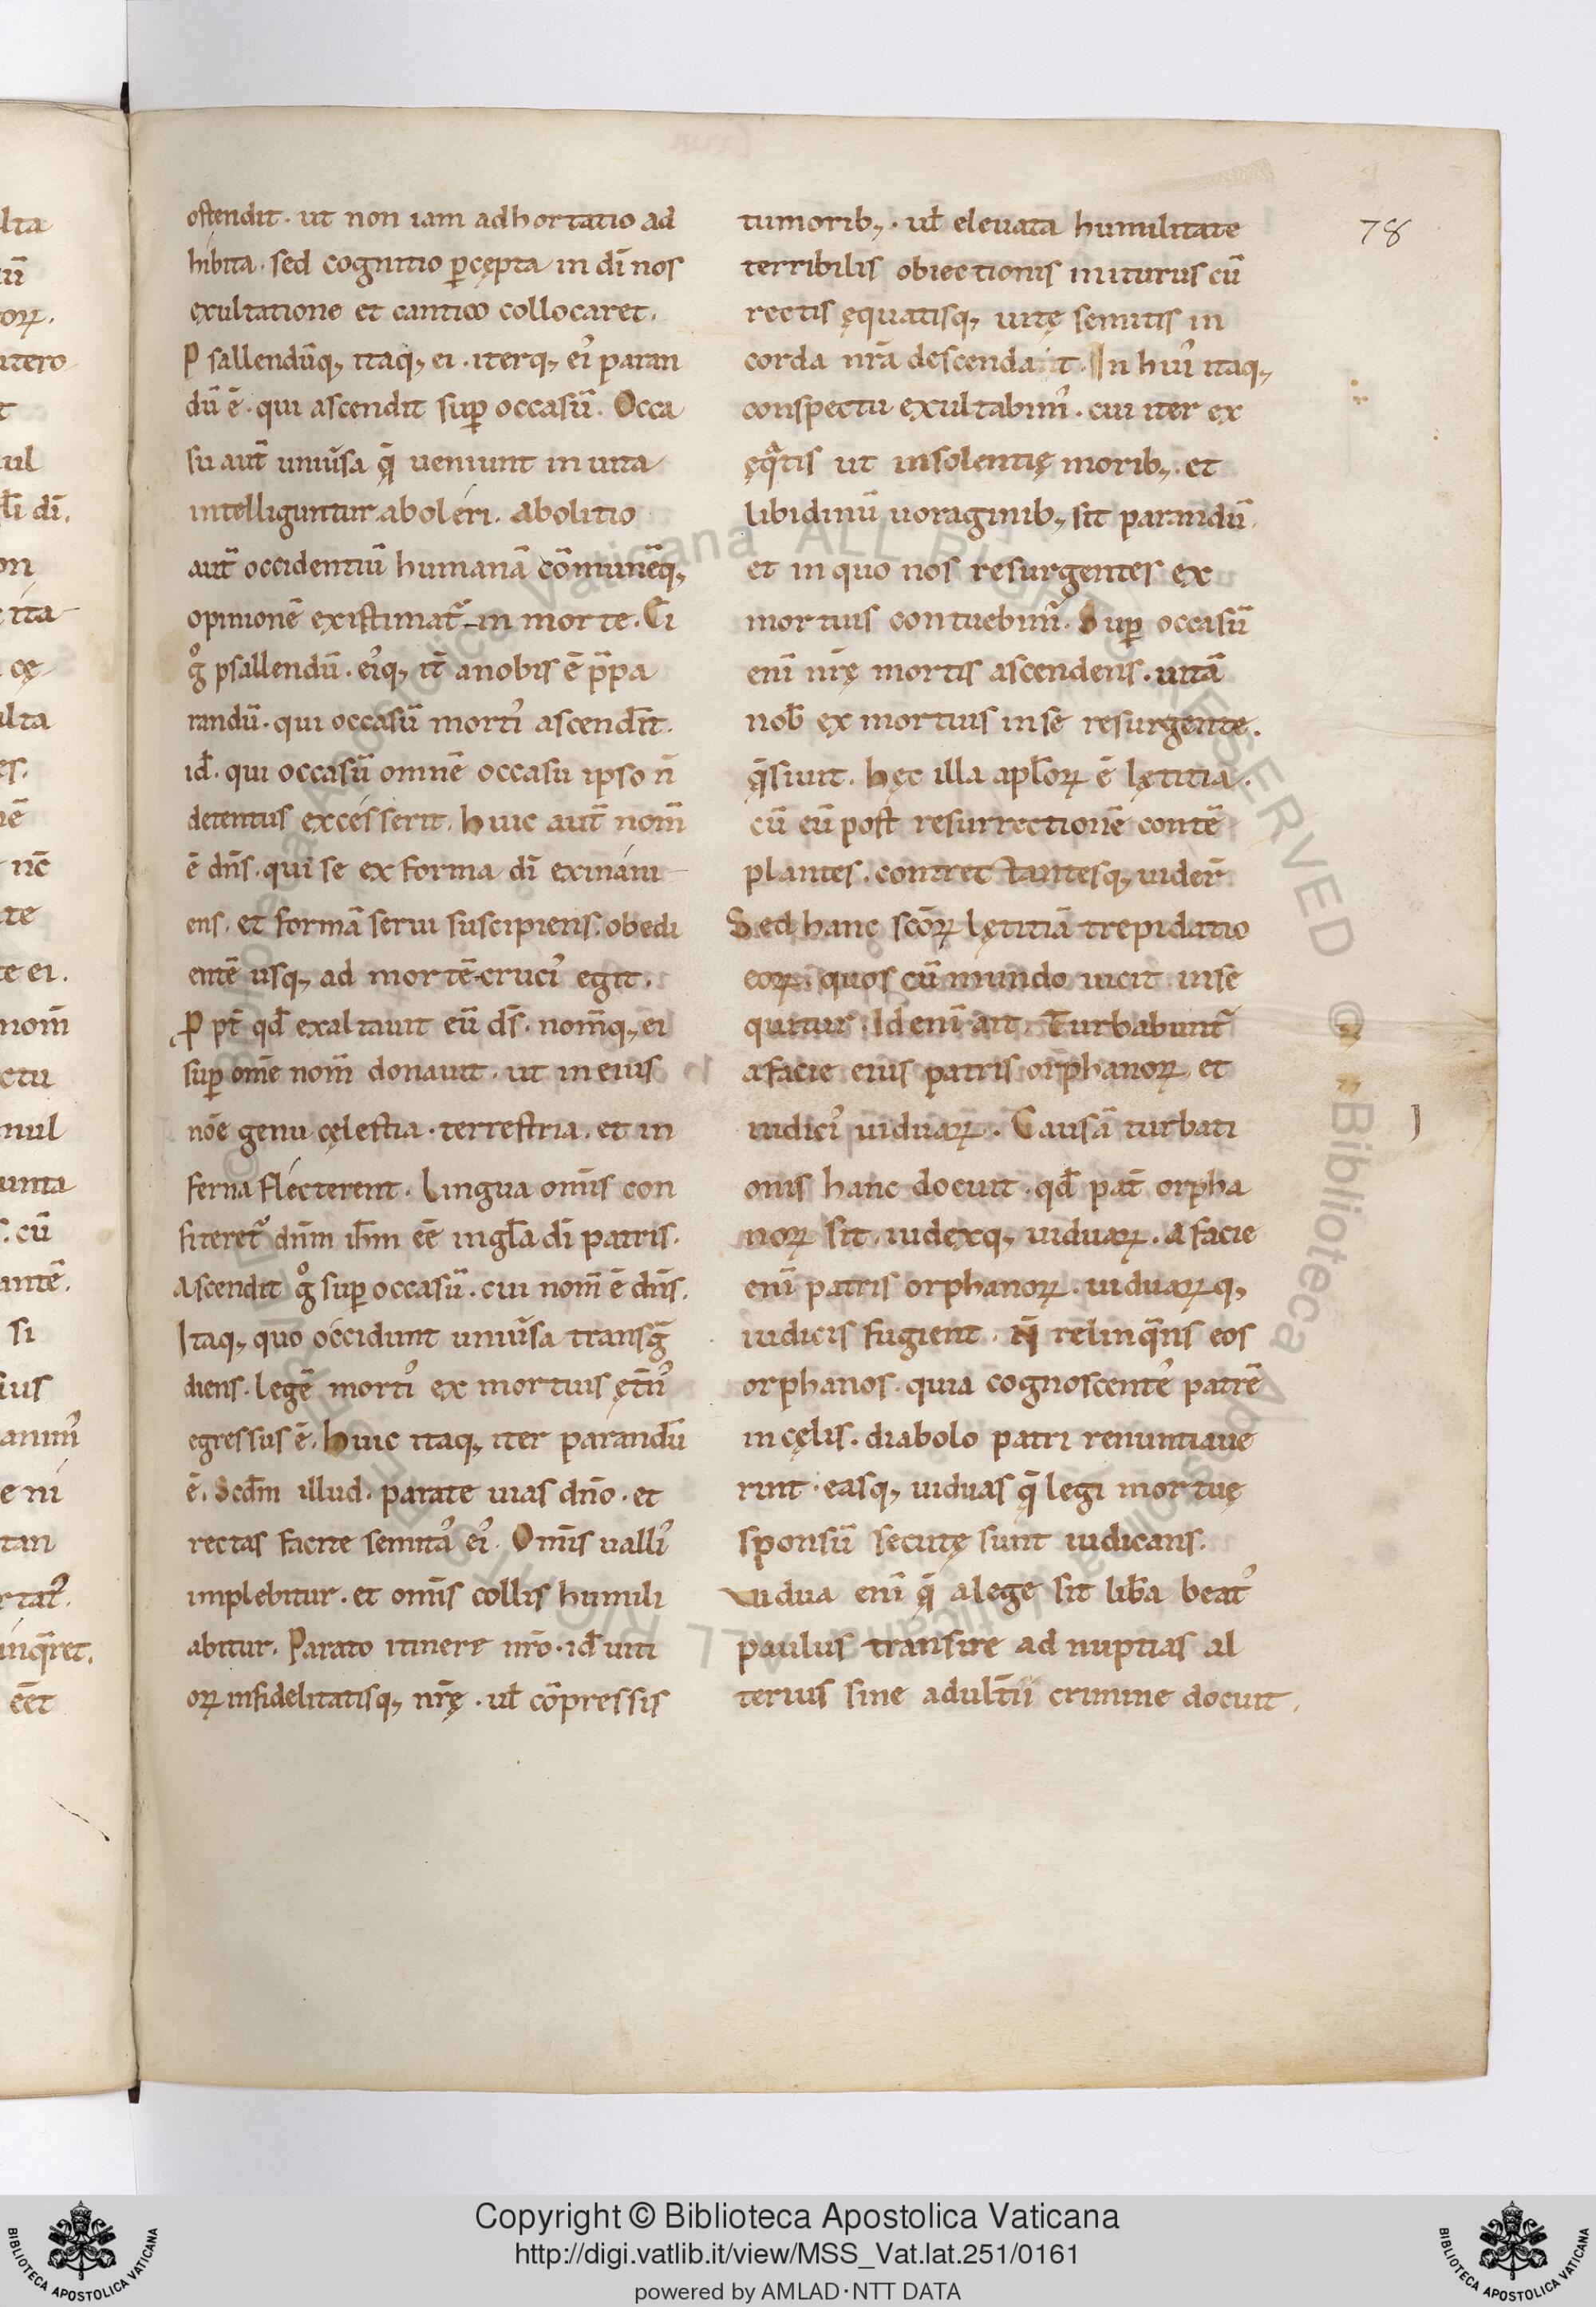 ostendit · ut non iam adhortatio ad
hibita · sed cognitio ꝑcępta in dī nos
exultatione et cantico collocaret ·
Psallendūq; itaq; ei · iterq; ei᾽ paran
dū ē · qui ascendit suꝑ occasū · Occa
su aut̄ uniūsa q̨̄ ueniunt in uita
intelliguntur aboleri · Abolitio
aut̄ occidentiū humanā cōmunēq;
opinionē existimat᾽ in morte · Ei
gͦ psallendū · ei᾽q; it̄ anobis ē p̄pa
randū · qui occasū morti᾽ ascendit̄ ·
id̄ · qui occasū omnē occasu ipso n̄
detentus excesserit · huic aut̄ nom̄
ē dn̄s · qui se ex forma dī exinani
ens · et formā serui suscipiens · obedi
entē usq; ad mortē cruci᾽ egit ·
Ꝓpt̄ qd̄ exaltauit eū ds̄ · nom̄q; ei
suꝑ om̄e nom̄ donauit · ut in eius
nōe genu cęlestia · terrestria · et in
ferna flecterent · Lingua om̄is con
fiteret᾽ dn̄m ih̄m eē in gl̄a dī patris ·
Ascendit gͦ suꝑ occasū · cui nom̄ ē dn̄s ·
Itaq; quo occidunt uniūsa transḡ
diens · legē morti᾽ ex mortuis ęt̄n᾽
egressus ē · huic itaq; iter parandū
ē · Scd̄m illud · parate uias dn̄o · et
rectas facite semita᾽ ei᾽ · Om̄is ualli᾽
implebitur · et om̄is collis humili
abitur · Parato itinere nr̄o · id̄ uiti
oꝝ infidelitatisq; nr̄ę · ul̄ cōpressis
78
tumorib; · ul̄ eleuata humilitate
terribilis obiectionis initurus cū
rectis ęquatisq; uitę semitis in
corda nr̄a descendat · In hui᾽ itaq;
conspectu exultabim᾽ · cui iter ex
ęq̄tis ut insolentię morib; · et
libidinū uoraginib; sit parandū ·
et in quo nos resurgentes ex
mortuis contuebim᾽ · Suꝑ occasū
enī nr̄ę mortis ascendens · uitā
nob̄ ex mortuis in se resurgente ·
q̨̄siuit · hęc illa apl̄oꝝ ē lętitia ·
cū eū post resurrectionē contē
plantes · contrectantesq; uider̄
Sed hanc sc̄oꝝ lętitiā trepidatio
eoꝝ · quos cū mundo uicit inse
quitur · Id enī ait · Turbabunt᾽
a facie eius patris orphanoꝝ et
iudici᾽ uiduaꝝ · Causā turbati
onis hanc docuit · qd̄ pat̄ orpha
noꝝ sit · iudexq; uiduaꝝ · A facie
enī patris orphanoꝝ · uiduaꝝq;
iudicis fugient · n̄ relinq̄ns eos
orphanos · quia cognoscente᾽ patrē
in cęlis · diabolo patri renuntiaue
runt · easq; uiduas q̨̄ legi mortuę
sponsū secutę sunt iudicans ·
Vidua enī q̨̄ a lege sit lib̄a beat᾽
paulus transire ad nuptias al
terius sine adult̄ii crimine docuit ·
Copyright © Biblioteca Apostolica Vaticana
http://digi.vatlib.it/view/MSS_Vat.lat.251/0161
powered by AMLAD·NTT DATA